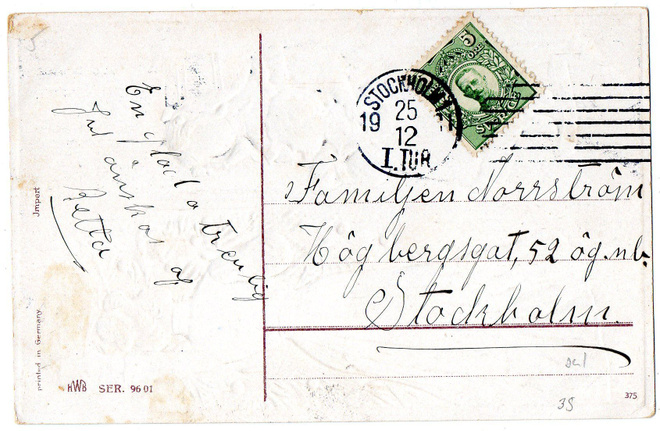 En glad o trevlig
Jul önskas af
Jetta
5
STOCKHOLM
25
19
12
1.TUR
Familjen Norrström
Högbergsgat, 52 ög. nb.
Stockholm
Jmport
printed in Germany
HWB SER. 9601
375
35